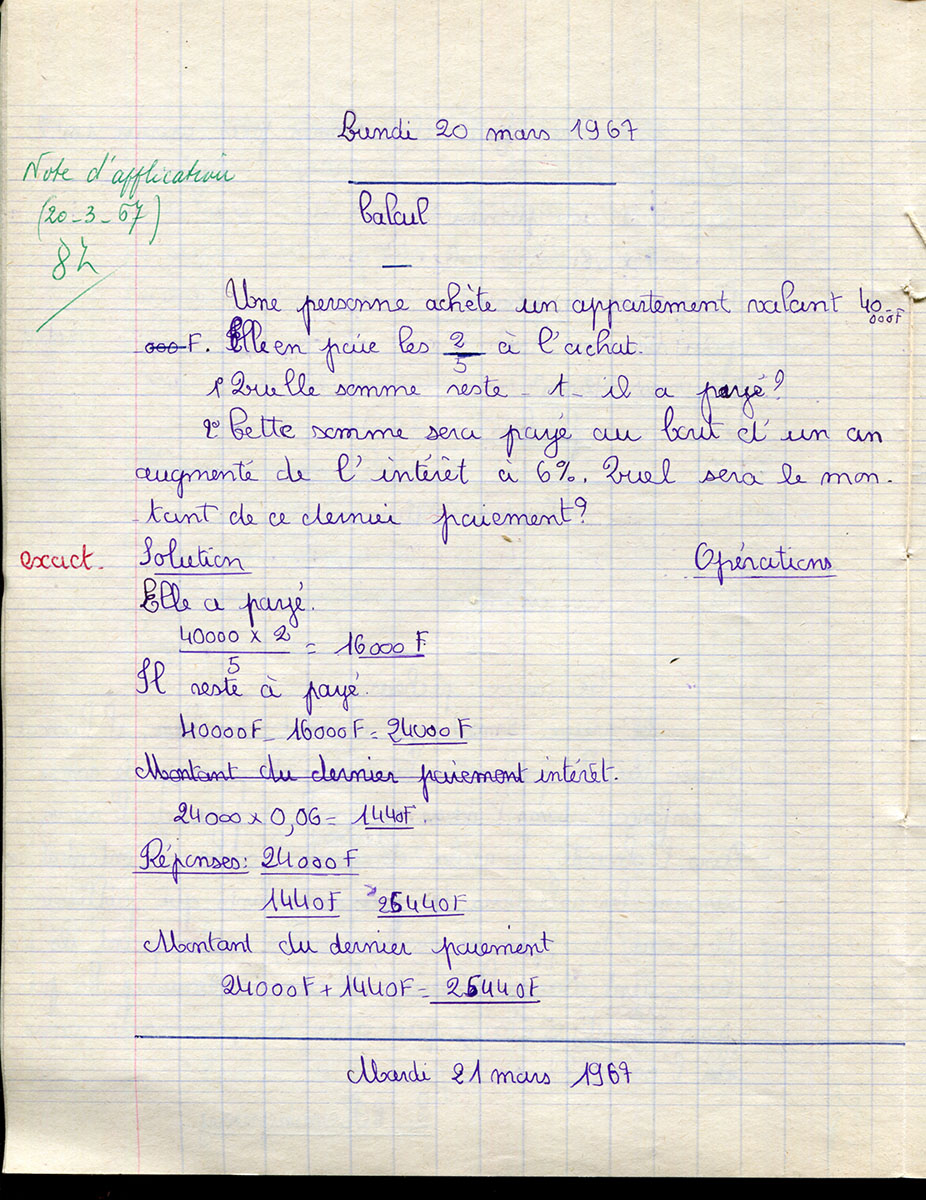 Lundi 20 mars 1967
Note d'application
(20-3-67)
Calcul
Une personne achète un appartement valant 40
000F
000 F. Elle en paie les 2/5 à l'achat.
1° Quelle somme reste-t-il a payé?
2° Cette somme sera payé au bout d'un an
augmenté de l'intérêt à 6%. Quel sera le mon-
tant de ce dernier paiement?
exact. Solution Opérations
Elle a payé.
40000 x 2 / 5 = 16000 F
Il reste à payé.
40000F - 16000F = 24000F
Montant du dernier paiement intérêt.
24000 x 0,06 = 1440F.
Réponses: 24000F
1440F 25440F
Montant du dernier paiement
24000F + 1440F = 25440F
Mardi 21 mars 1967